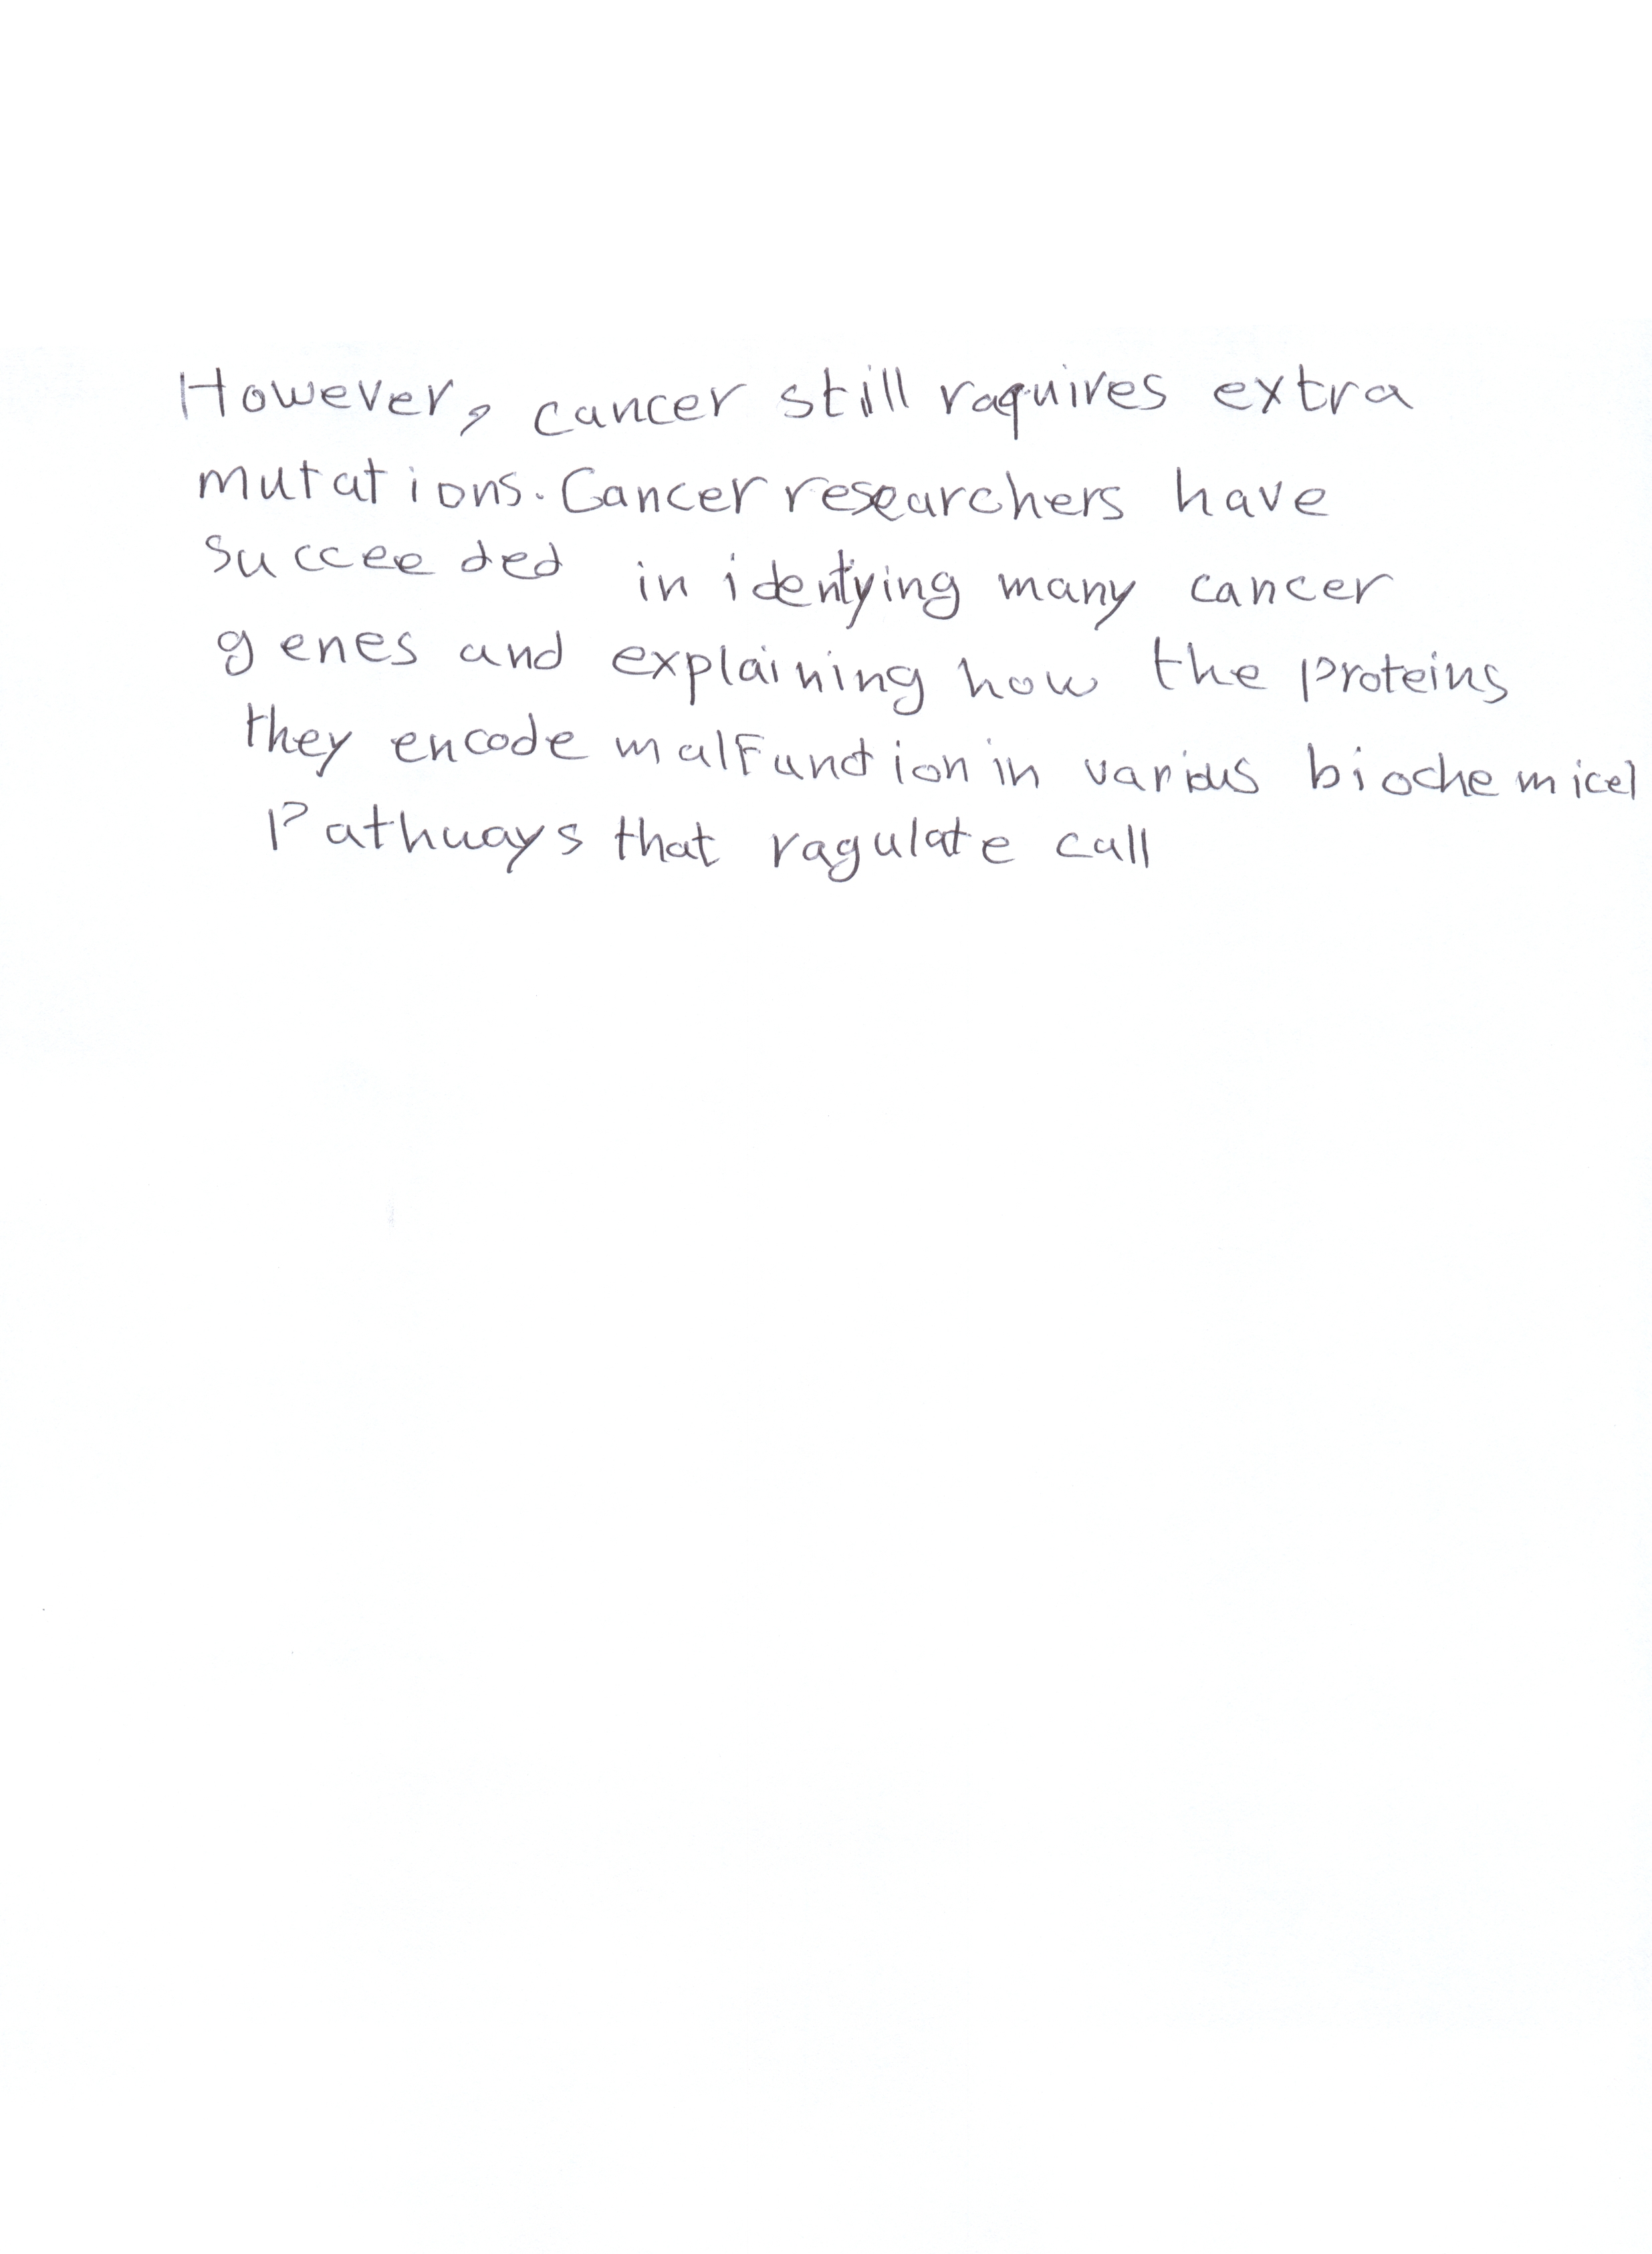 However, cancer still raquires extra
mutations. Cancer researchers have
succeeded in identying many cancer
genes and explaining how the proteins
they encode malfunction in various biochemicel
Pathways that ragulate call